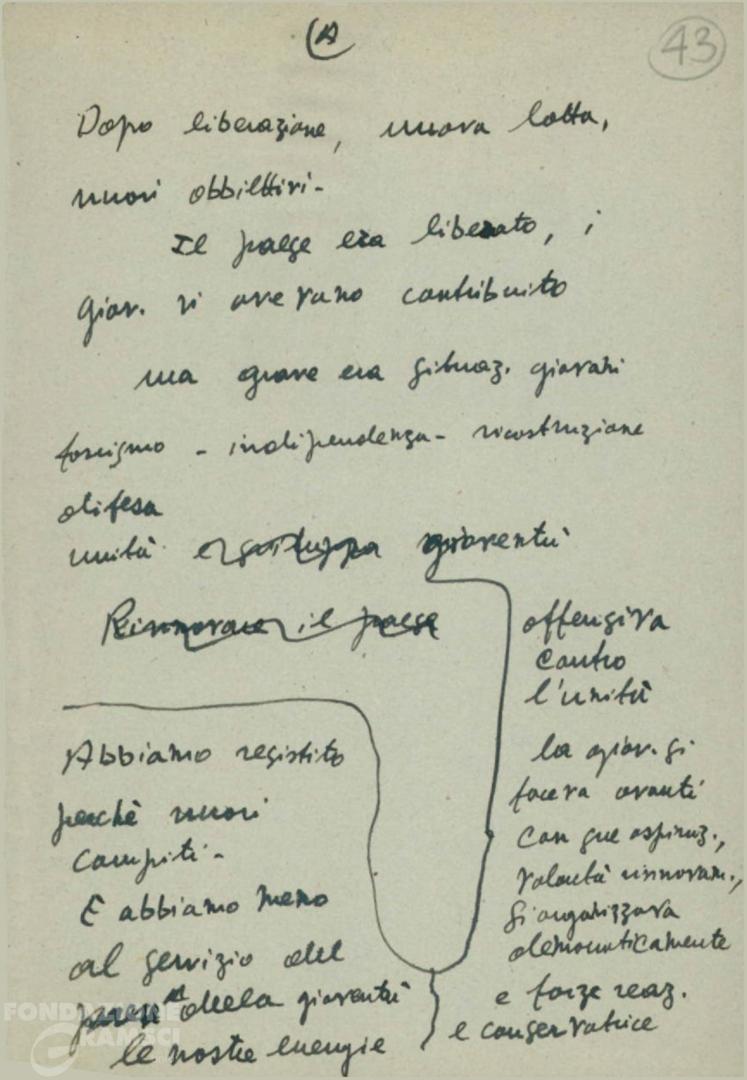 A
43
Dopo liberazione, nuova lotta,
nuovi obbiettivi-
Il paese era liberato, i
giov. vi avevano contribuito
ma grave era situaz. giovani
fascismo - indipendenza - ricostruzione
difesa
unità e sviluppo gioventù
Rinnovare il paese
offensiva
contro
l'unità
la giov. si
faceva avanti
con sue aspiraz.,
volontà rinnovam.,
si organizzava
democraticamente
e forze reaz.
e conservatrice
Abbiamo resistito
perchè nuovi
compiti-
E abbiamo messo
al servizio del
paese e della gioventù
le nostre energie
FONDAZIONE
GRAMSCI